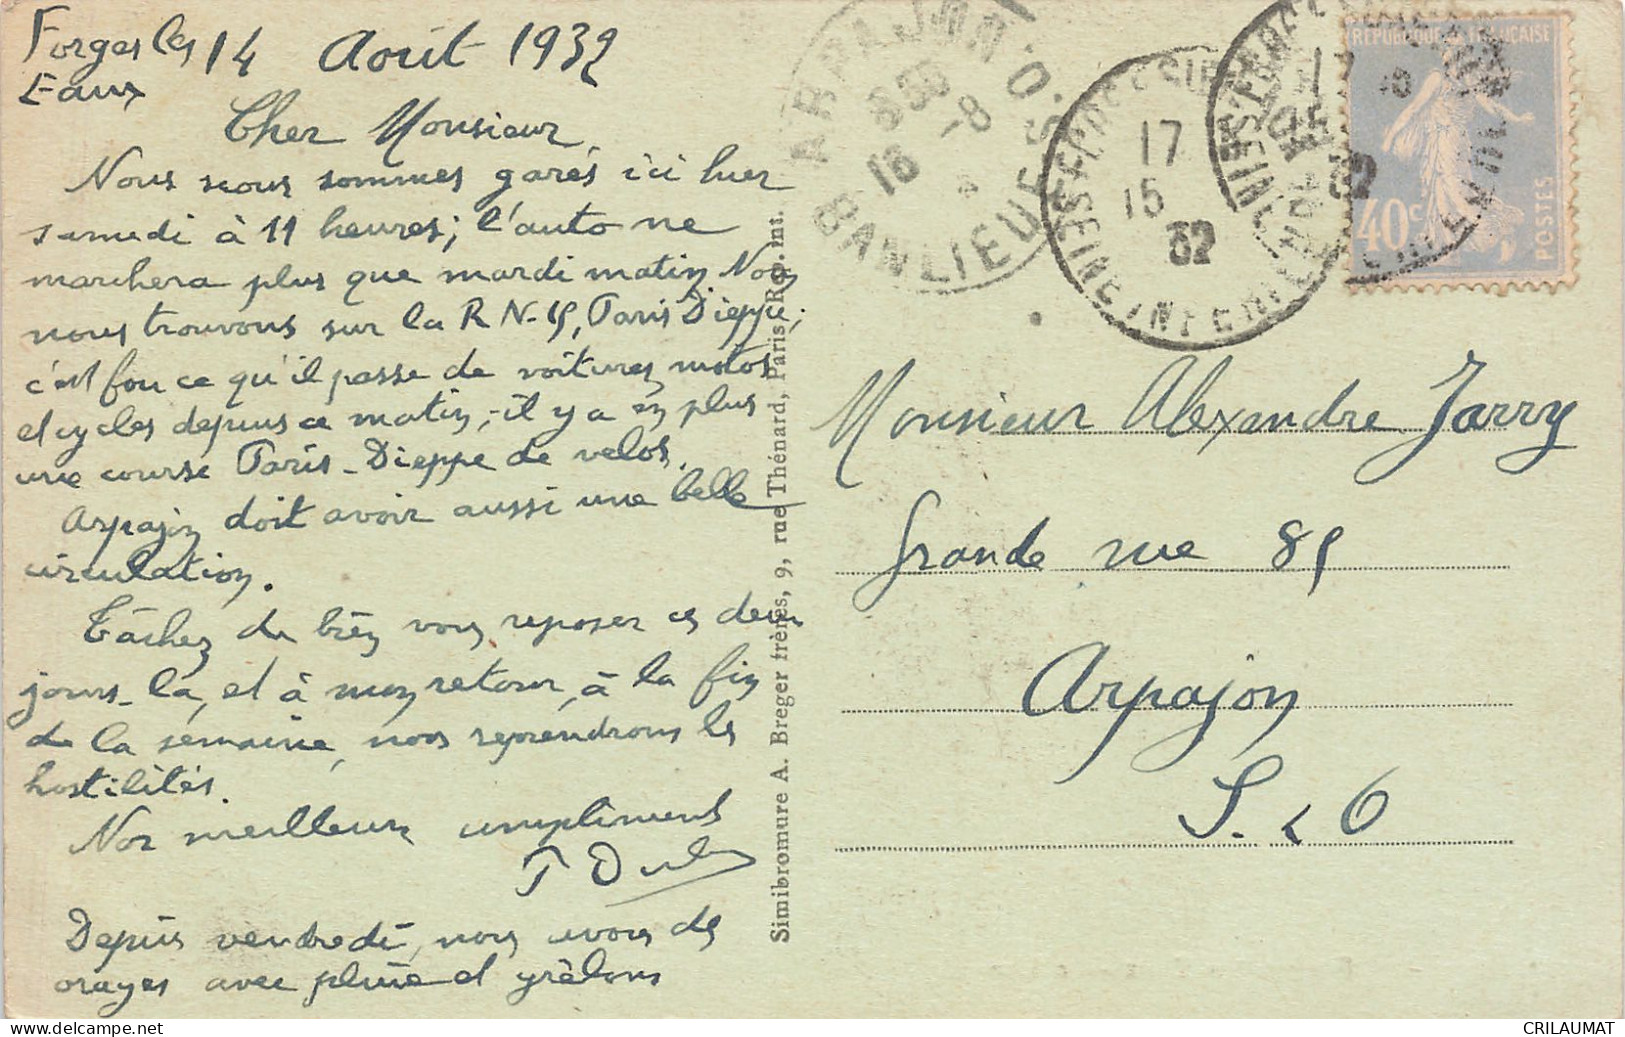 Forges les
Eaux
14 Août 1932
Cher Monsieur
Nous nous sommes garés ici hier
samedi à 11 heures; l'auto ne
marchera plus que mardi matin. Nous
nous trouvons sur la R N-15, Paris Dieppe;
c'est fou ce qu'il passe de voitures, motos
et cycles depuis ce matin, - il y a en plus
une course Paris-Dieppe de velos.
Arpajon doit avoir aussi une belle
circulation.
Tâchez de bien vous reposer ces deux
jours-là, et à mon retour, à la fin
de la semaine, nous reprendrons les
hostilités.
Nos meilleurs compliments
Depuis vendredi, nous avons des
orages avec pluie et grêlons
Simibromure A. Breger frères, 9, rue Thénard, Paris Reg. int.
ARPAJON S.-O.
8 30
16 -8
BANLIEUE
17
15
32
SEINE INFERE
REPUBLIQUE FRANÇAISE
40c
POSTES
Monsieur Alexandre Jarry
Grande rue 85
Arpajon
S. & O
CRILAUMAT